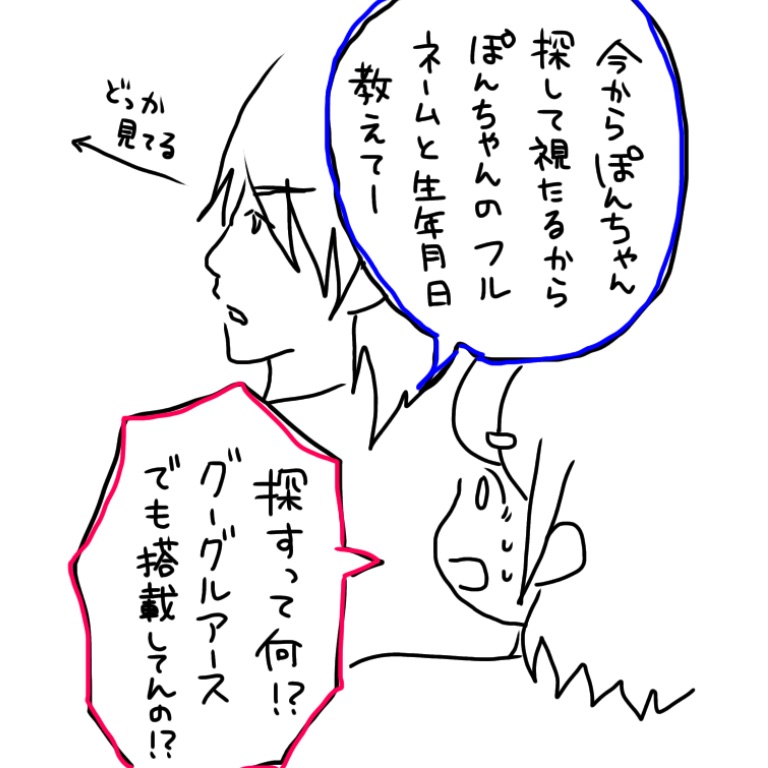 今からぽんちゃん
探して視たるから
ぽんちゃんのフル
ネームと生年月日
教えてー
どっか
見てる
探すって何!?
グーグルアース
でも搭載してんの!?